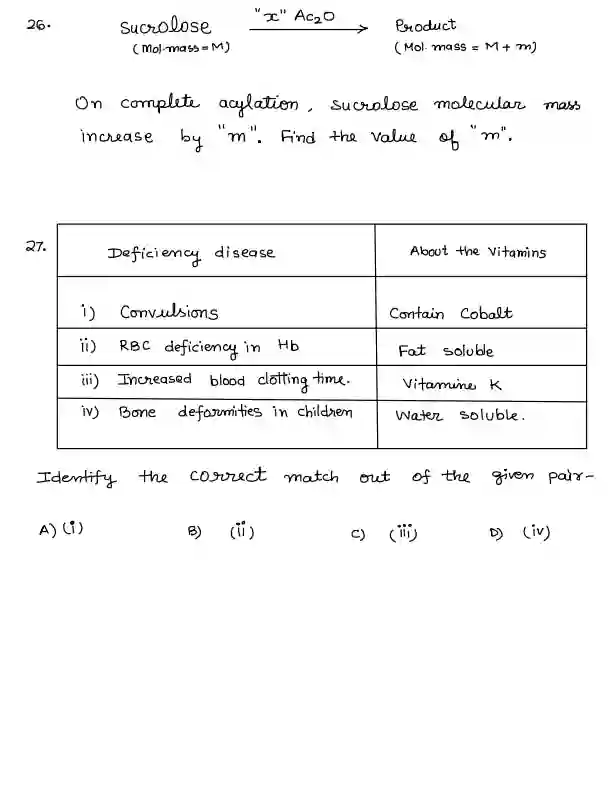 26. Sucrolose "x" Ac2O Product
(Mol. mass = M) (Mol. mass = M + m)
On complete acylation, sucrolose molecular mass
increase by "m". Find the value of "m".
27. Deficiency disease About the Vitamins
i) Convulsions Contain Cobalt
ii) RBC deficiency in Hb Fat soluble
iii) Increased blood clotting time. Vitamine K
iv) Bone deformities in children Water soluble.
Identify the correct match out of the given pair-
A) (i) B) (ii) C) (iii) D) (iv)